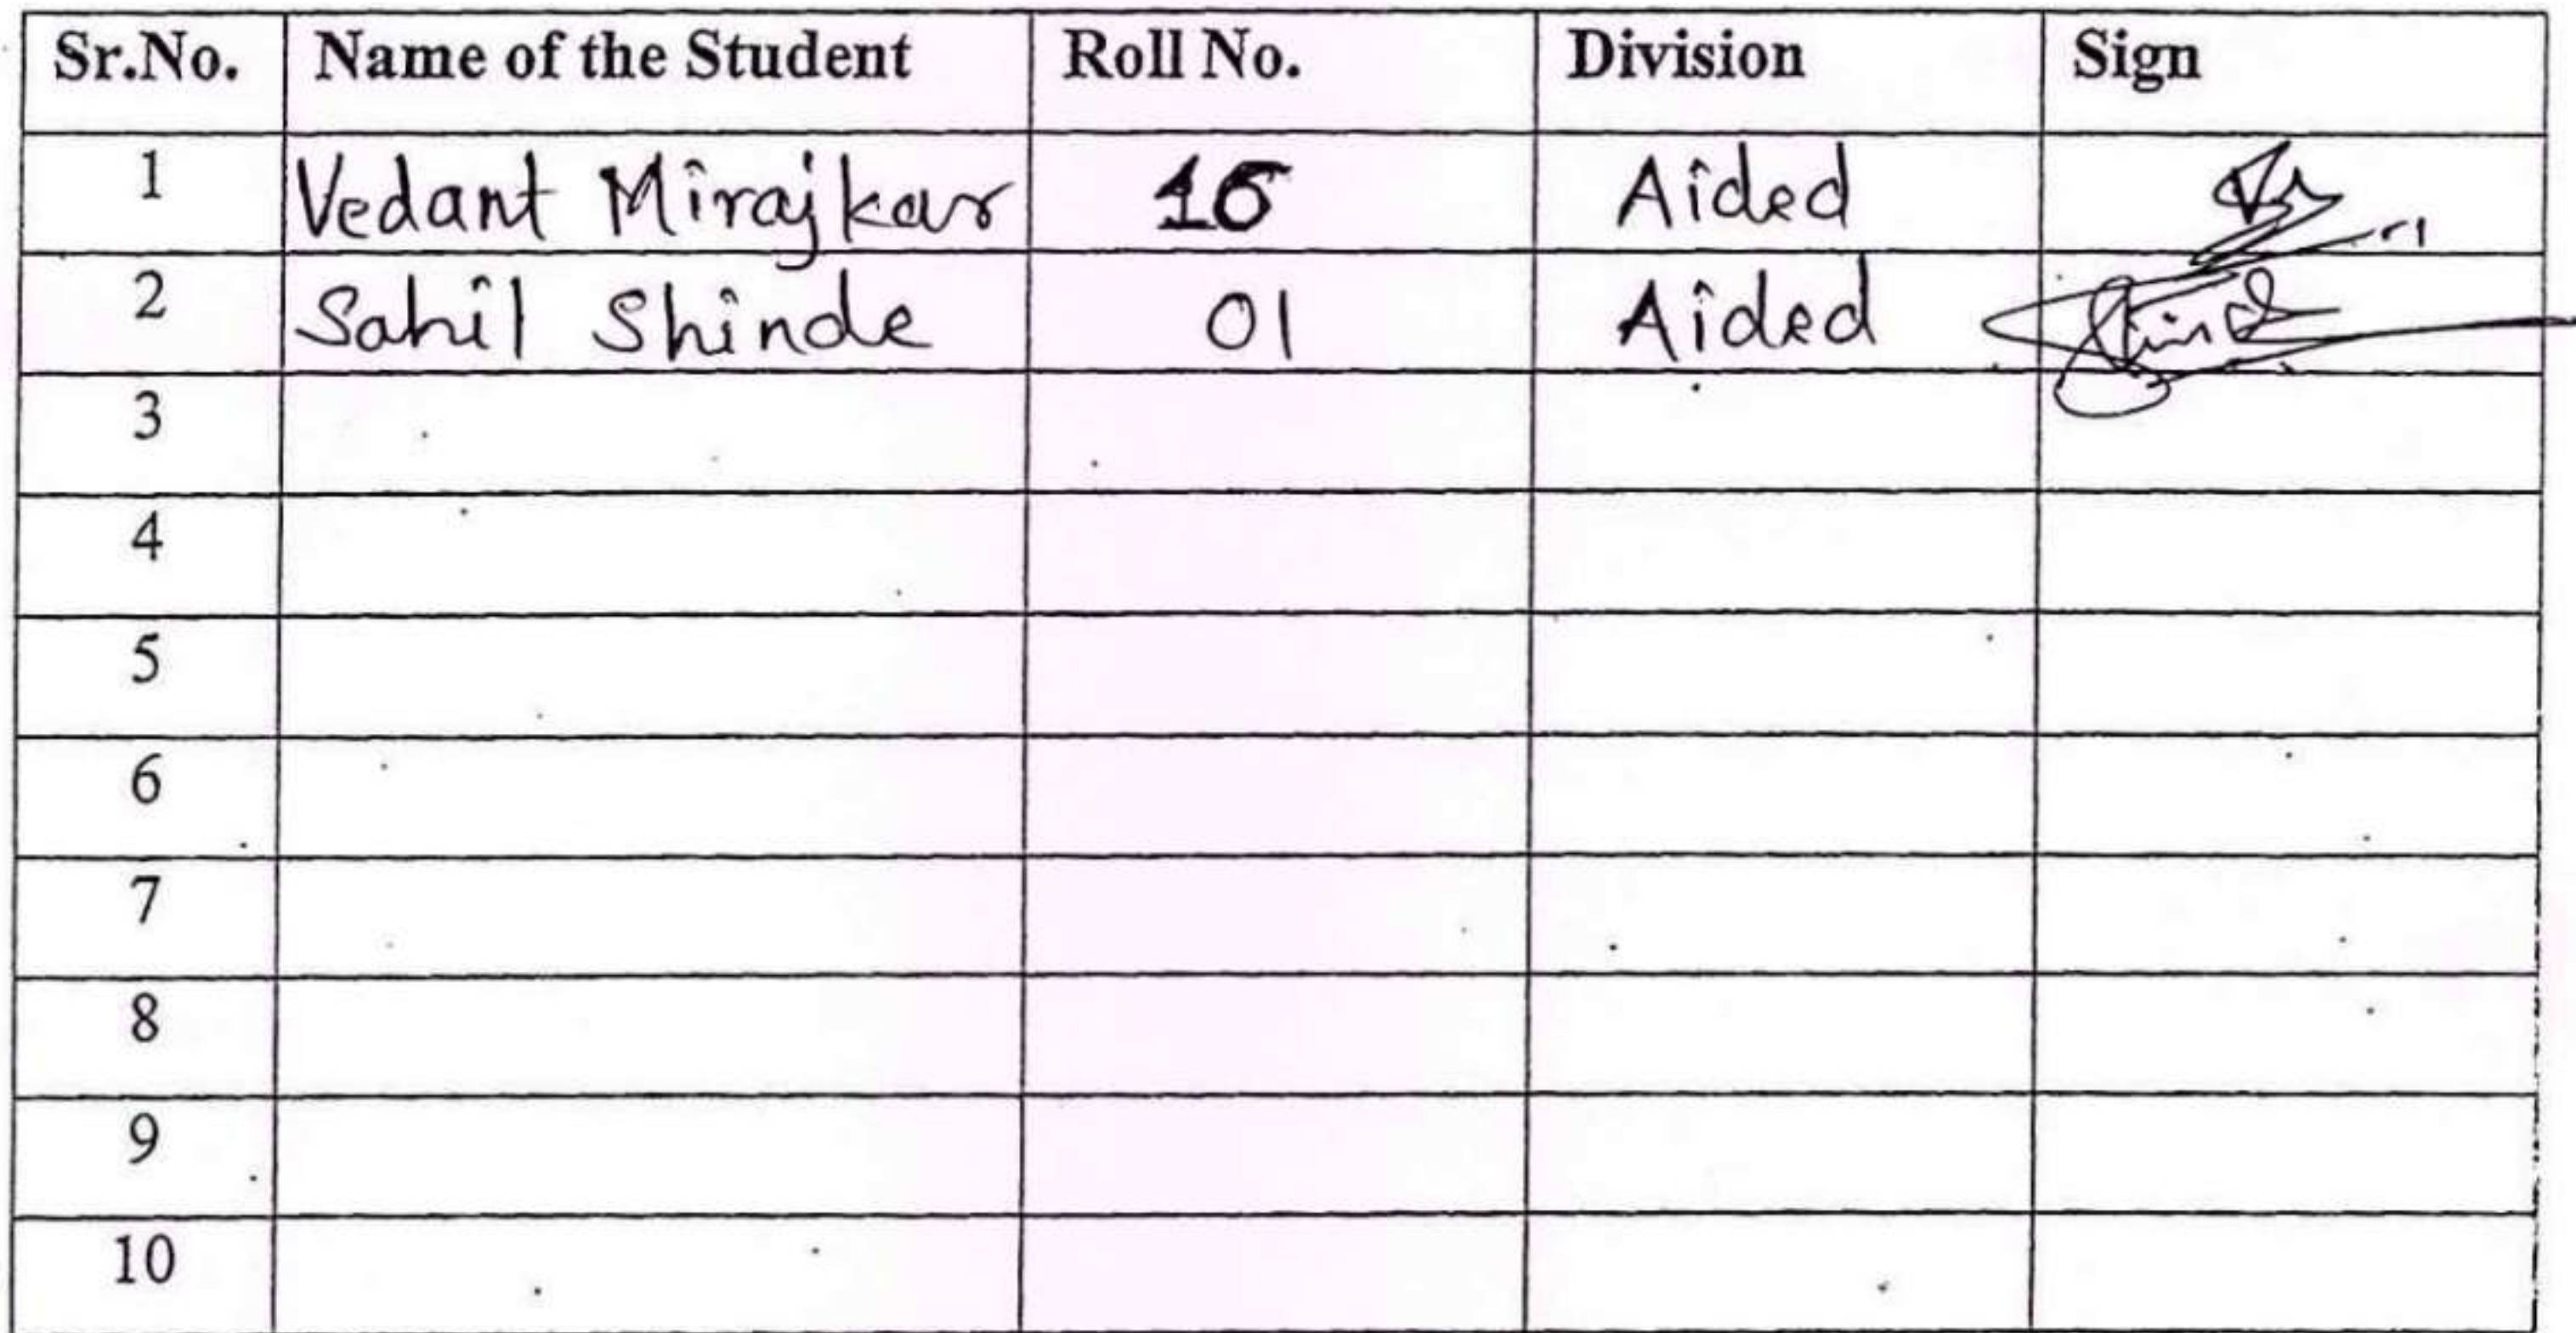 Sr.No. Name of the Student Roll No. Division Sign
1 Vedant Mirajkar Aided
2 Sahil Shinde 01 Aided
3
4
5
6
7
8
9
10